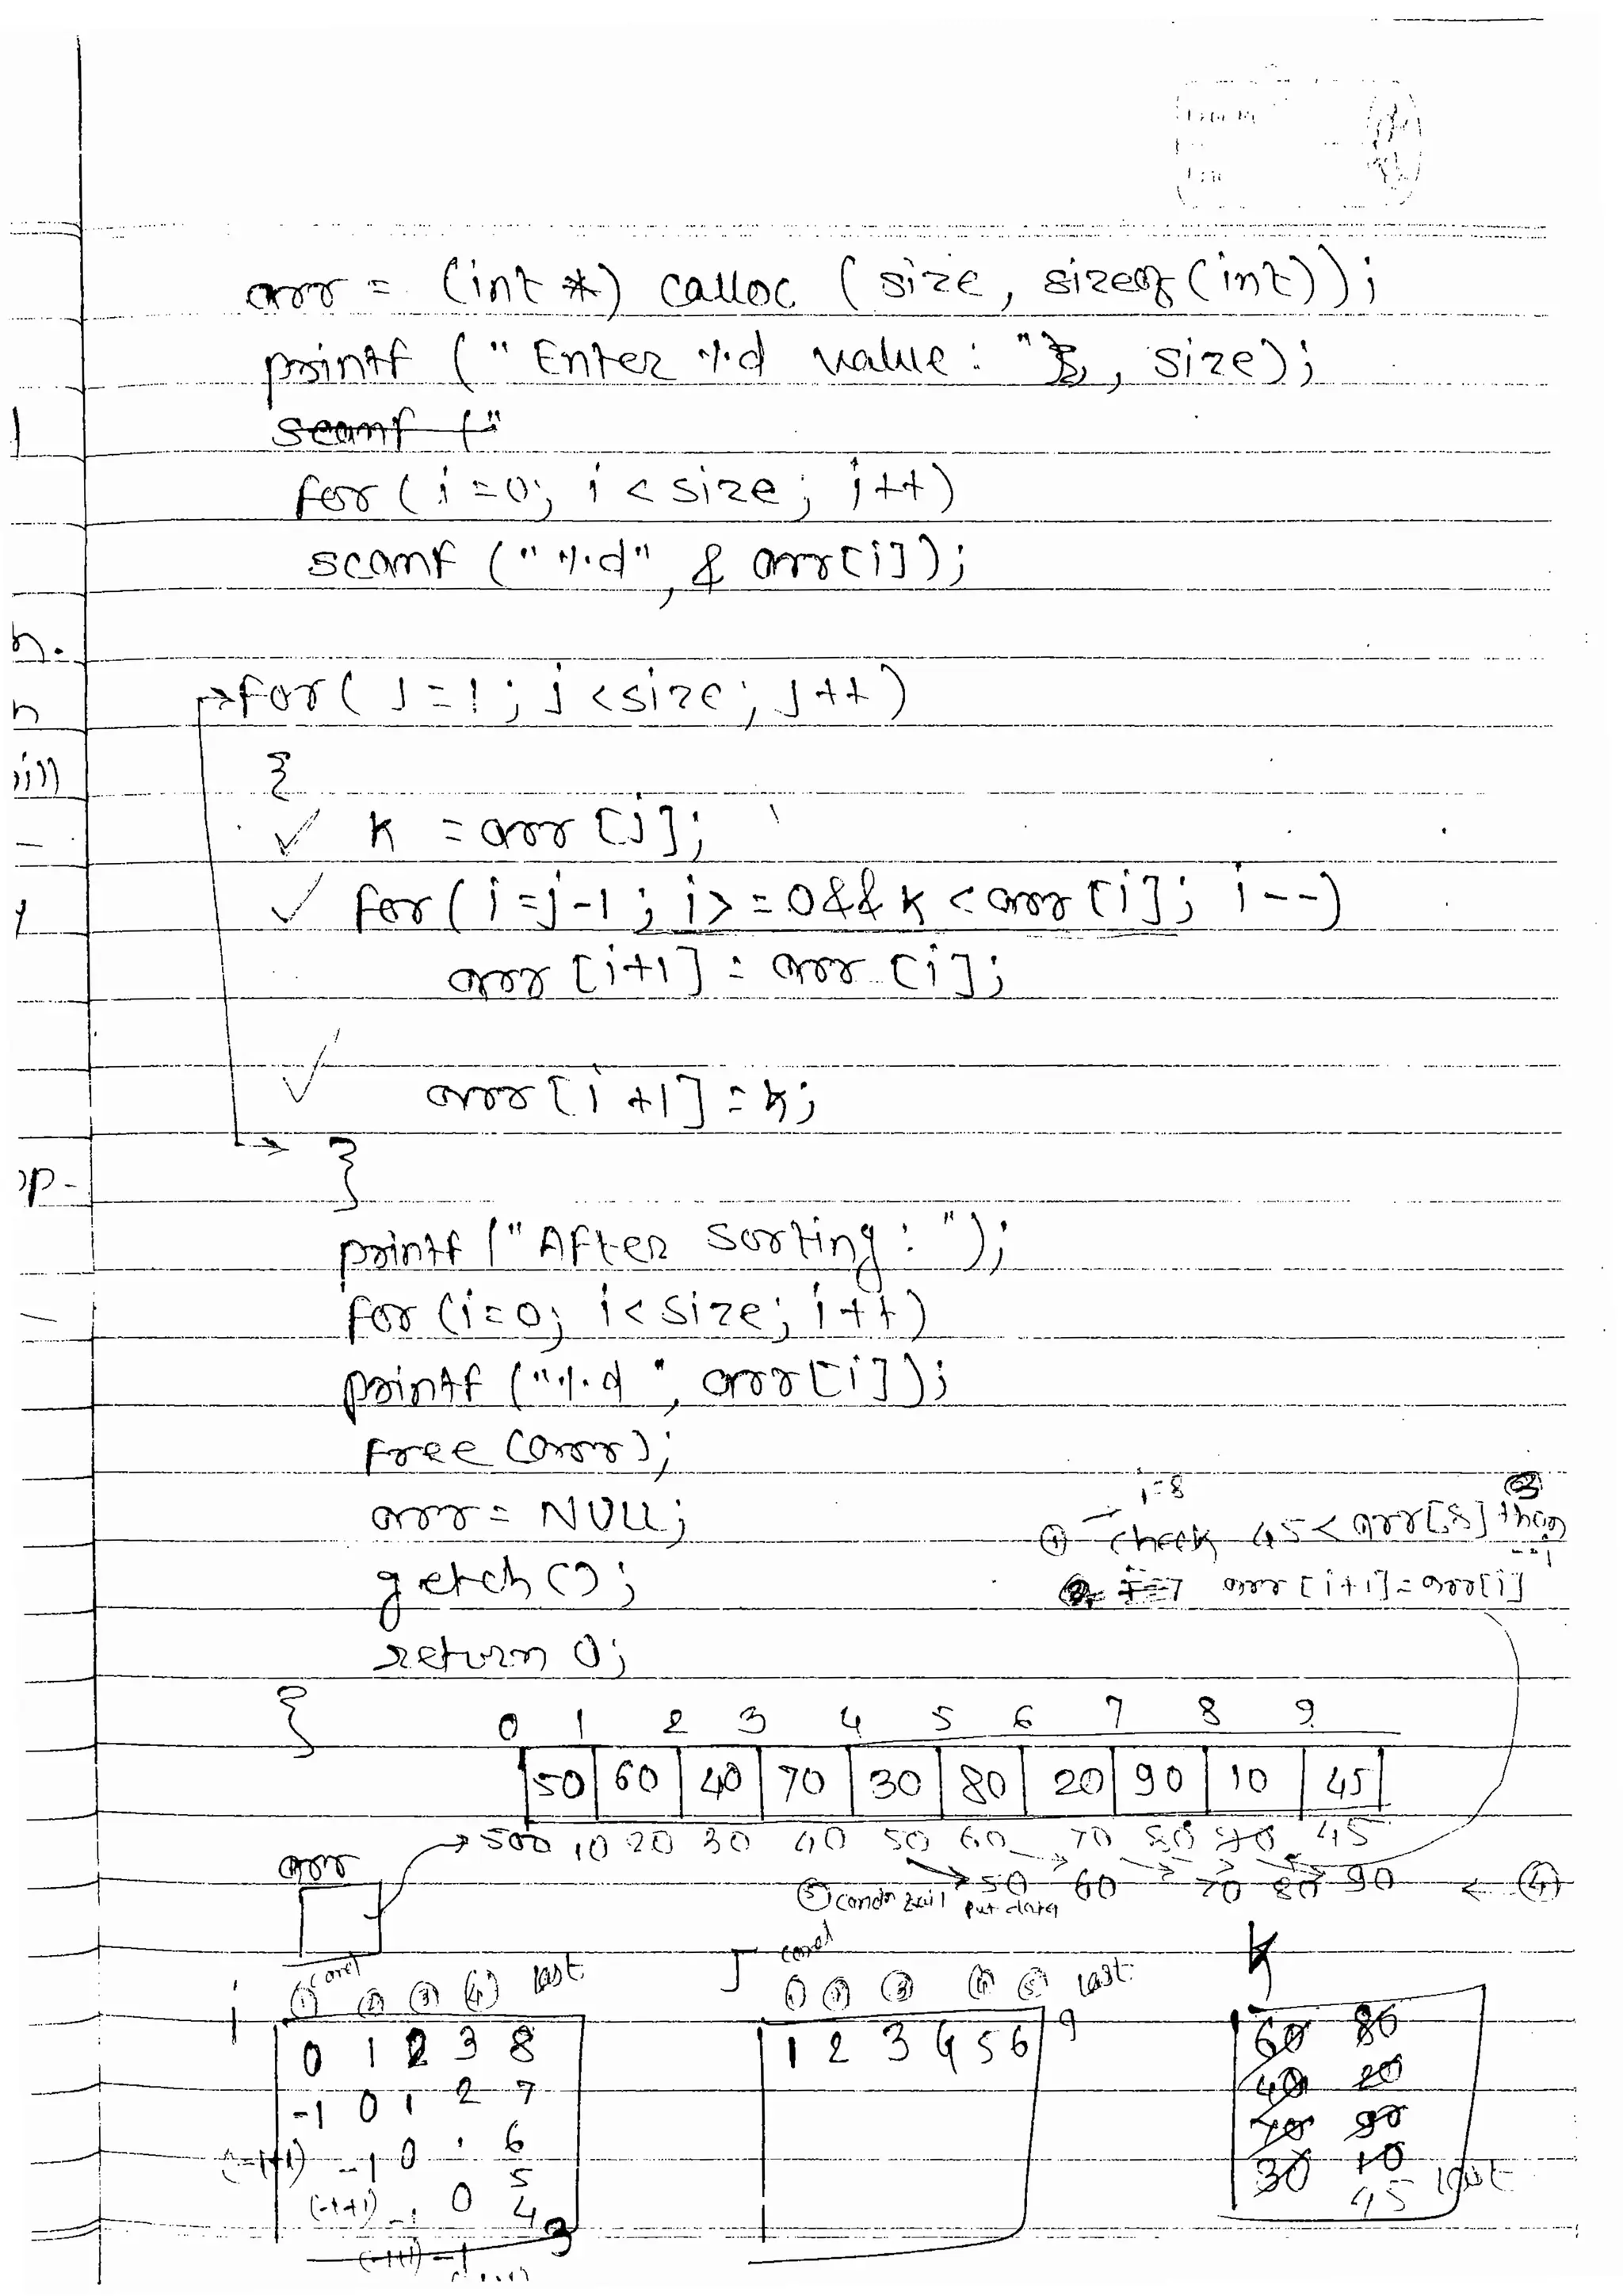 arr = (int *) calloc ( size, sizeof (int));
printf (" Enter %d value : ", size);
scanf ("
for ( i = 0; i < size ; i++)
scanf (" %d", & arr[i]);
for ( j = 1 ; j < size ; j++)
{
k = arr [j];
for ( i = j-1 ; i > = 0 && k < arr [i]; i--)
arr [i+1] = arr [i];
arr [i +1] = k;
}
printf (" After Sorting : ");
for (i = 0; i < size; i++)
printf ("%d ", arr[i]);
free (arr);
arr = NULL;
i=8
① check 45 < arr[8] then
getch ();
arr [i+1] = arr[i]
return 0;
}
0 1 2 3 4 5 6 7 8 9
50 60 40 70 30 80 20 90 10 45
500 10 20 30 40 50 60 70 80 90 45
arr
50 60 70 80 90 ← ④
⑤ condn fail put data
i ① ② ③ ④ last
j cond ① ② ③ ④ ⑤ last
k
0 1 2 3 8
1 2 3 4 5 6 9
60 80
-1 0 1 2 7
40 20
6
70 90
(-1+1) -1 0
5
30 10
(-1+1) -1 0 4 3
45 last
(-1+1) -1